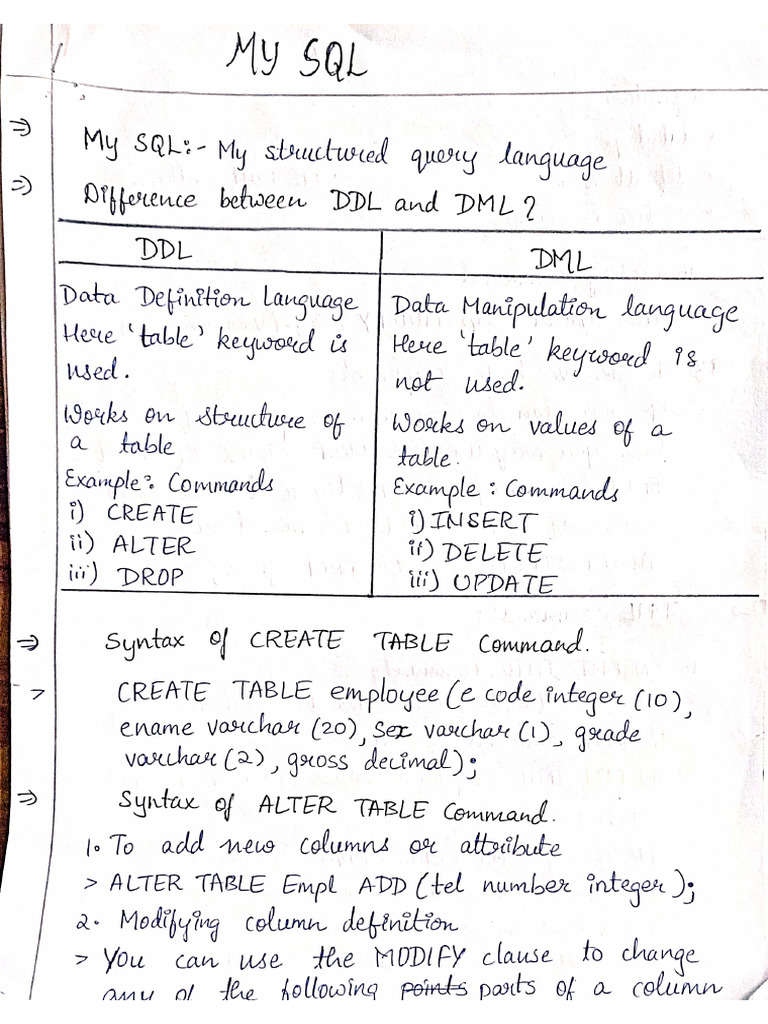 MY SQL
⇒ My SQL:- My structured query language
⇒ Difference between DDL and DML?
DDL
Data Definition Language
Here 'table' keyword is
used.
Works on structure of
a table
Example: Commands
i) CREATE
ii) ALTER
iii) DROP
DML
Data Manipulation language
Here 'table' keyword is
not used.
Works on values of a
table.
Example: Commands
i) INSERT
ii) DELETE
iii) UPDATE
⇒ Syntax of CREATE TABLE Command.
> CREATE TABLE employee(e code integer (10),
ename varchar (20), Sex varchar (1), grade
varchar (2), gross decimal);
⇒ Syntax of ALTER TABLE Command.
1. To add new columns or attribute
> ALTER TABLE Empl ADD (tel number integer);
2. Modifying column definition
> You can use the MODIFY clause to change
any of the following points parts of a column